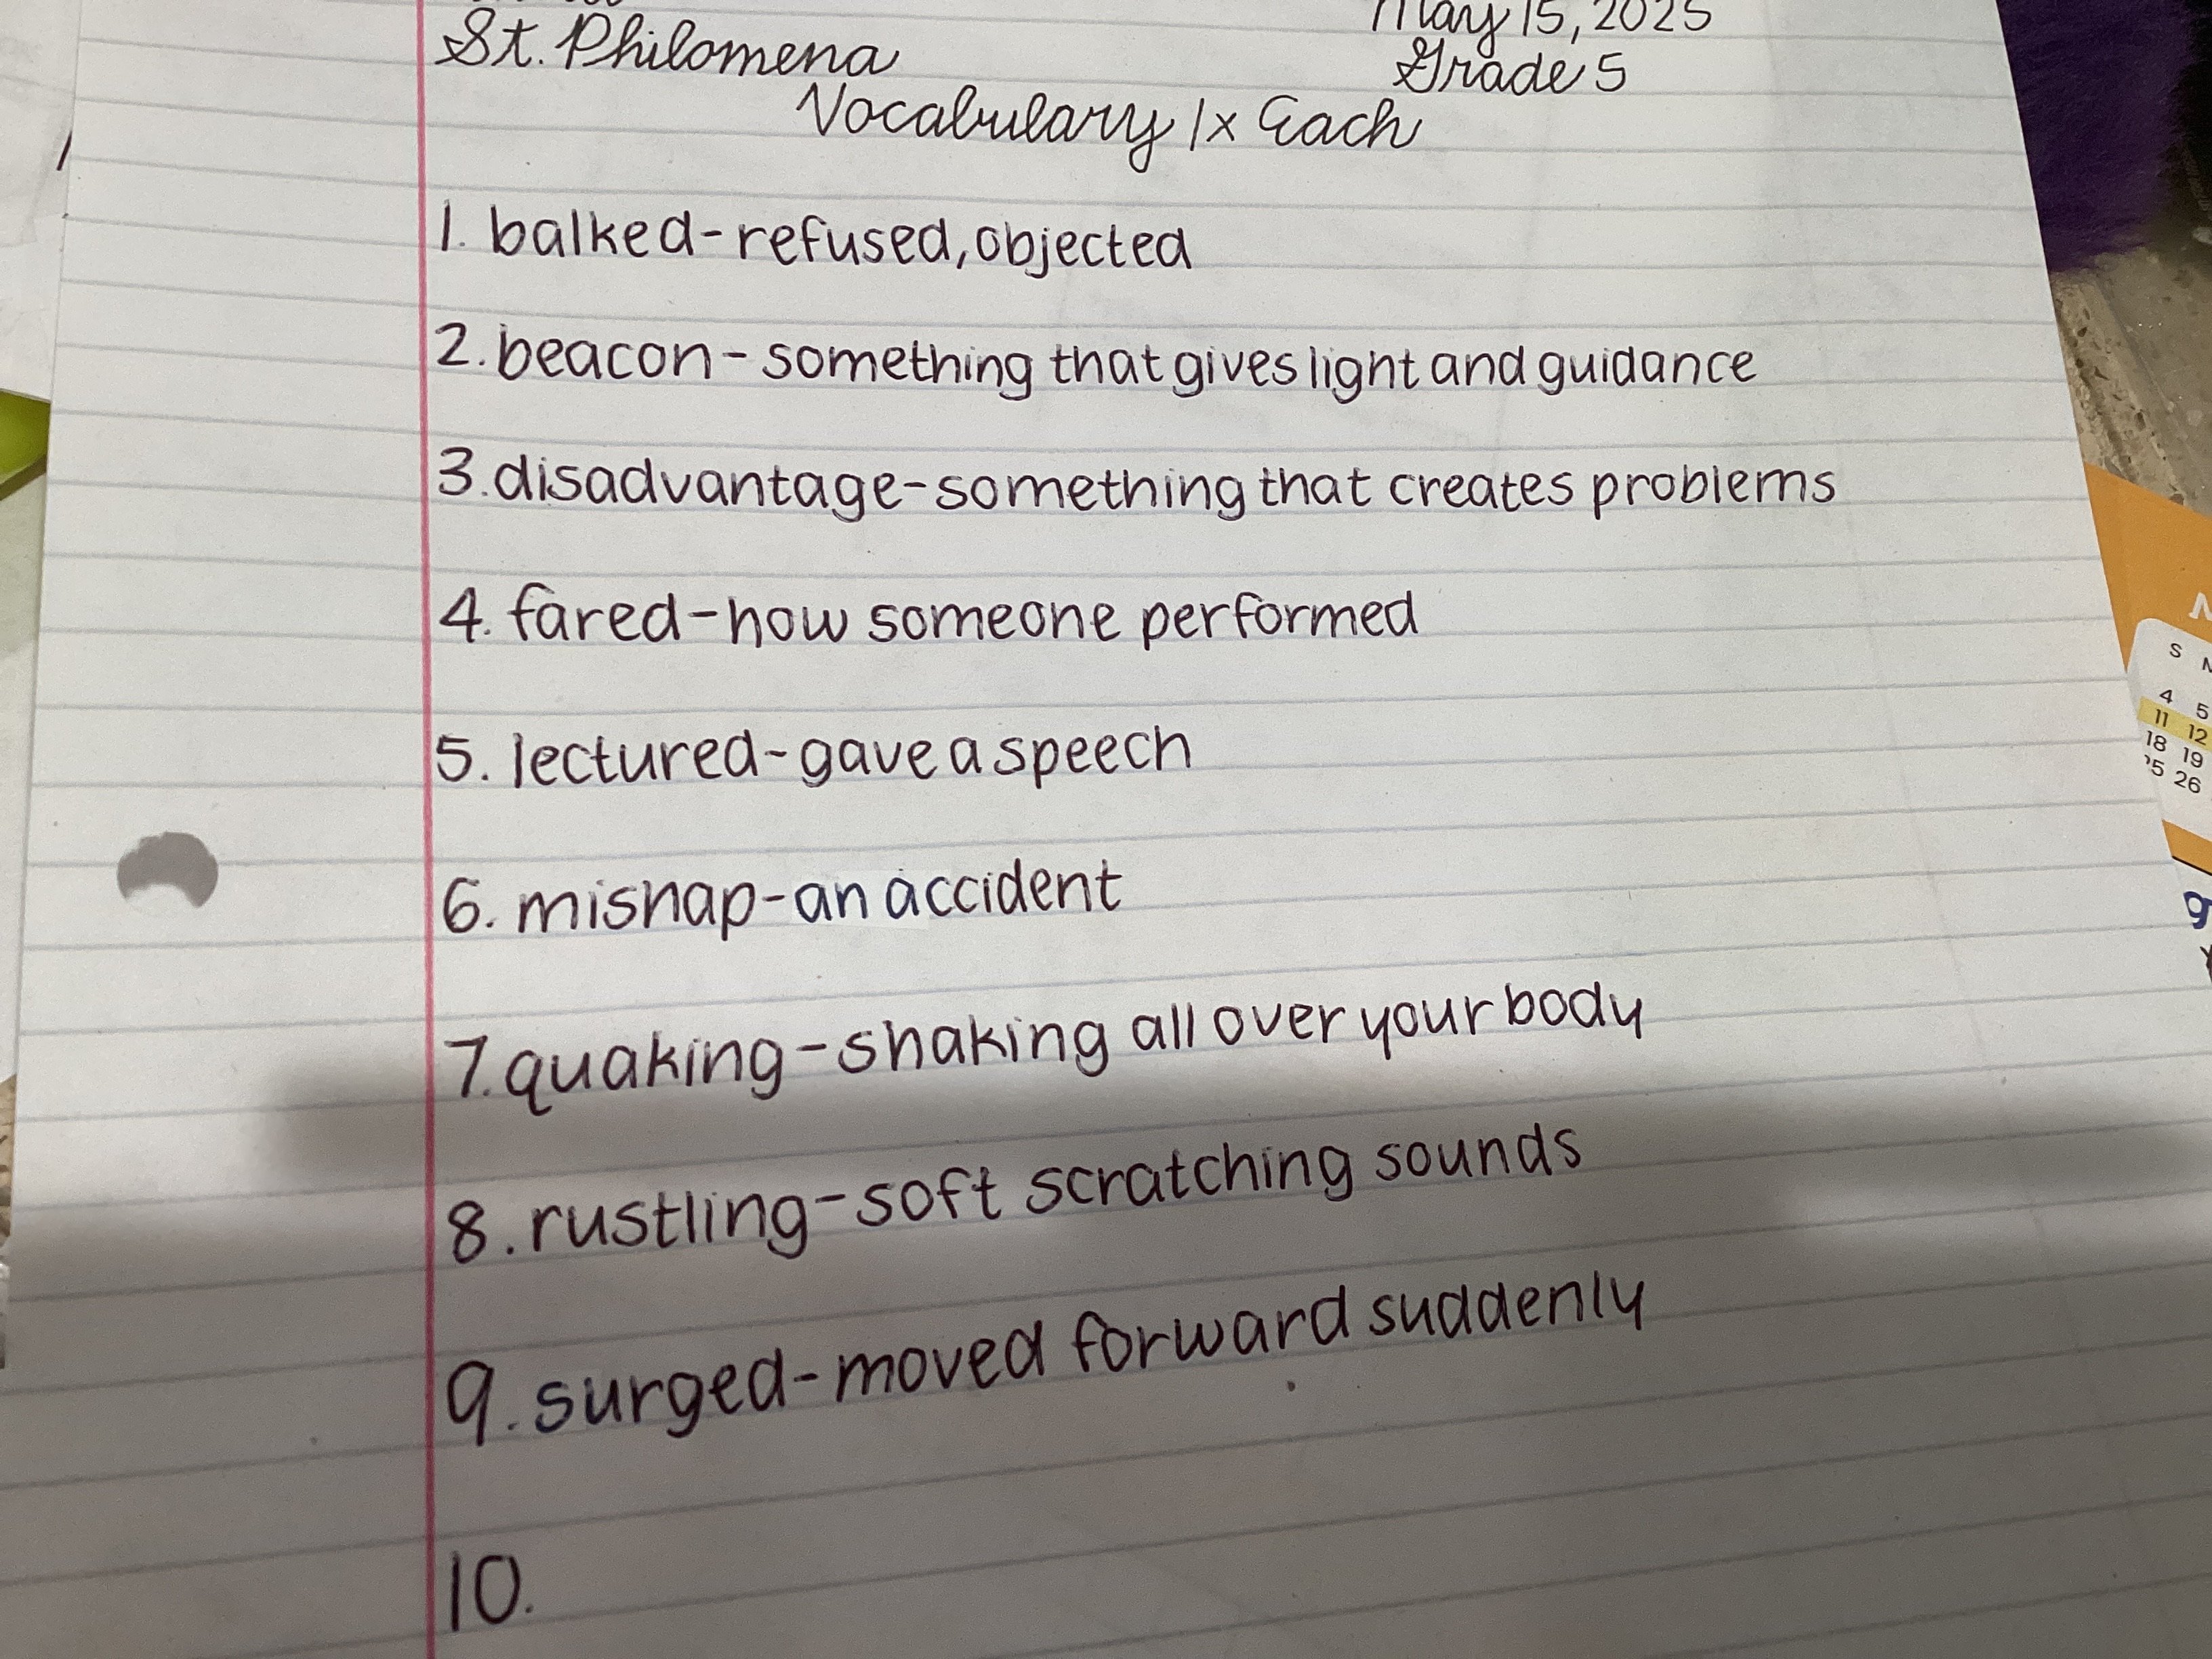 St. Philomena
May 15, 2025
Grade 5
Vocabulary 1x Each
1. balked-refused, objected
2. beacon-something that gives light and guidance
3. disadvantage-something that creates problems
4. fared-how someone performed
5. lectured-gave a speech
6. mishap-an accident
7. quaking-shaking all over your body
8. rustling-soft scratching sounds
9. surged-moved forward suddenly
10.
S
4 5
11 12
18 19
25 26